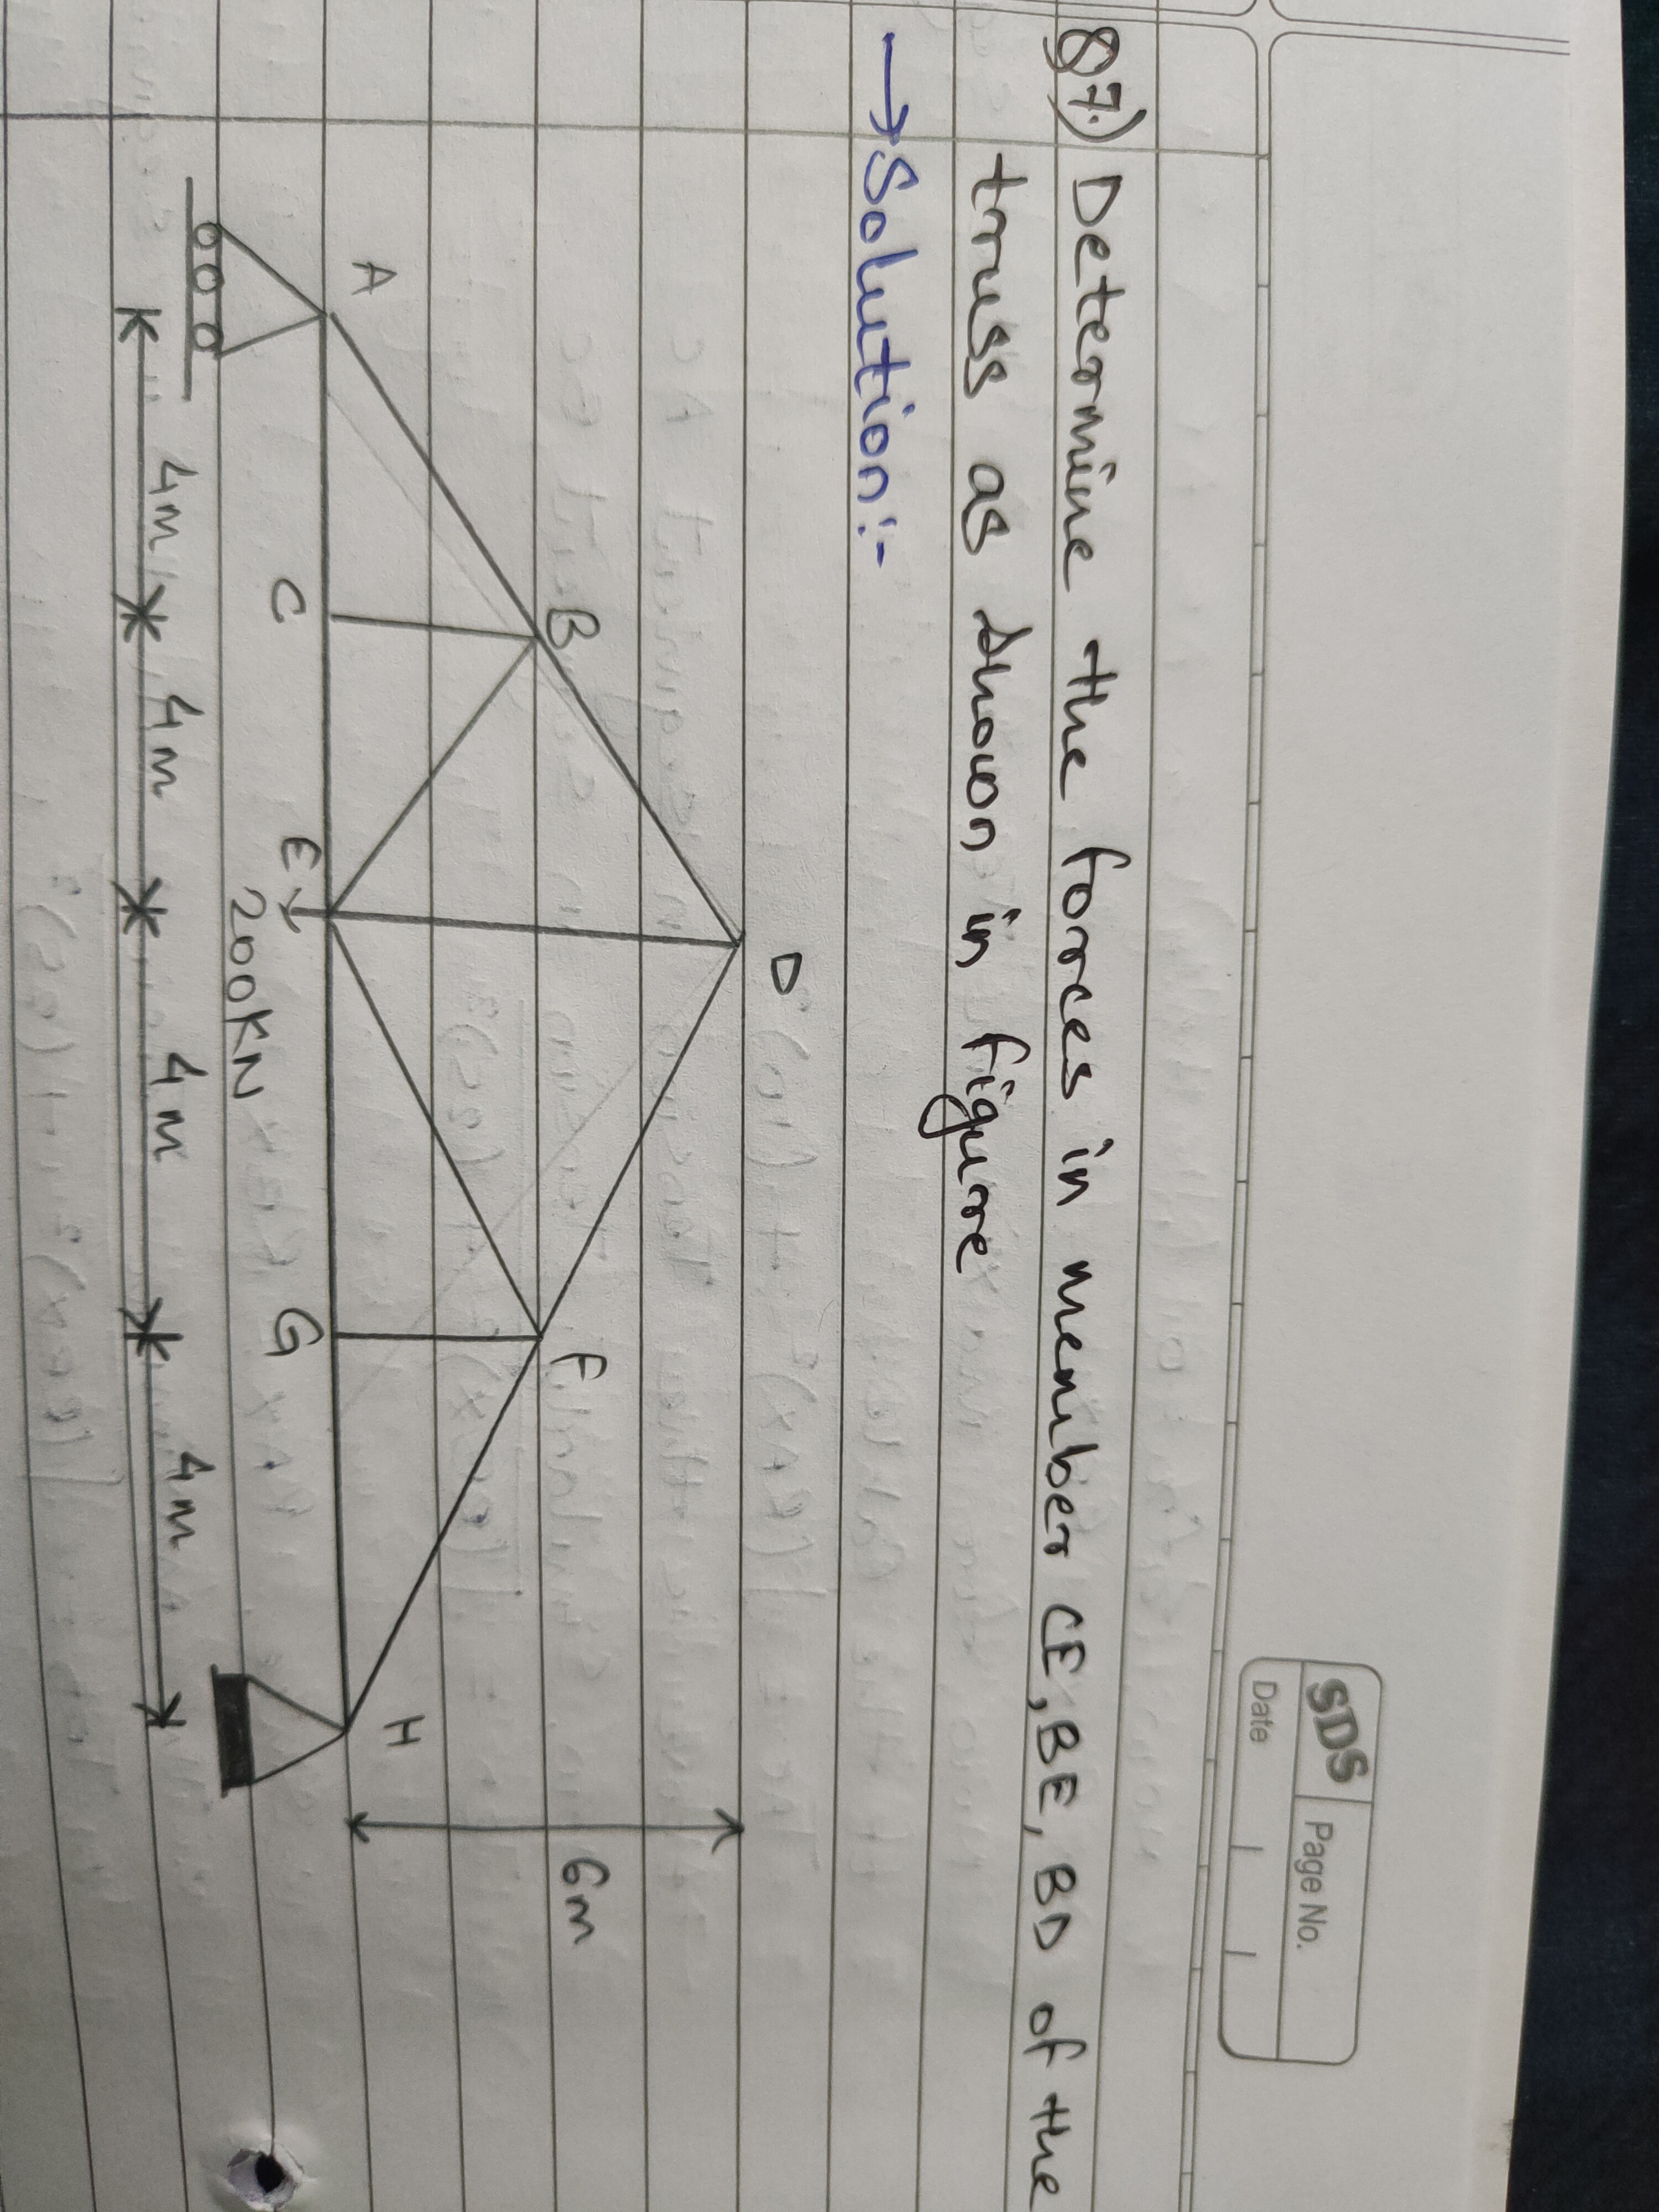 SDS Page No.
Date
Q7.) Determine the forces in member CE, BE, BD of the
truss as shown in figure
→ Solution:-
D
B
F
6m
A
H
C
E
G
200KN
4m 4m 4m 4m